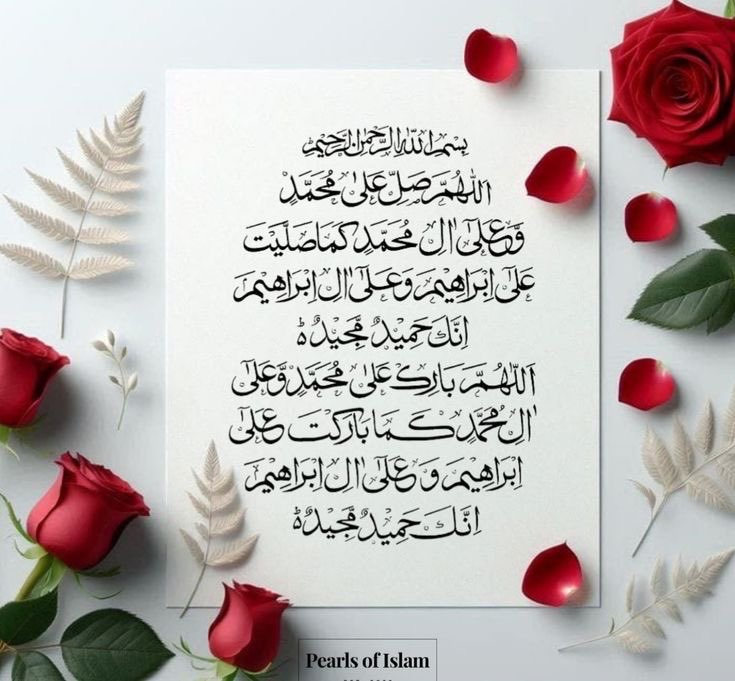 بِسْمِ اللّٰهِ الرَّحْمٰنِ الرَّحِيْمِ
اَللّٰهُمَّ صَلِّ عَلٰى مُحَمَّدٍ
وَّعَلٰٓى اٰلِ مُحَمَّدٍ كَمَا صَلَّيْتَ
عَلٰٓى اِبْرَاهِيْمَ وَعَلٰٓى اٰلِ اِبْرَاهِيْمَ
اِنَّكَ حَمِيْدٌ مَّجِيْدٌ ط
اَللّٰهُمَّ بَارِكْ عَلٰى مُحَمَّدٍ وَّعَلٰٓى
اٰلِ مُحَمَّدٍ كَمَا بَارَكْتَ عَلٰٓى
اِبْرَاهِيْمَ وَعَلٰٓى اٰلِ اِبْرَاهِيْمَ
اِنَّكَ حَمِيْدٌ مَّجِيْدٌ ط
Pearls of Islam